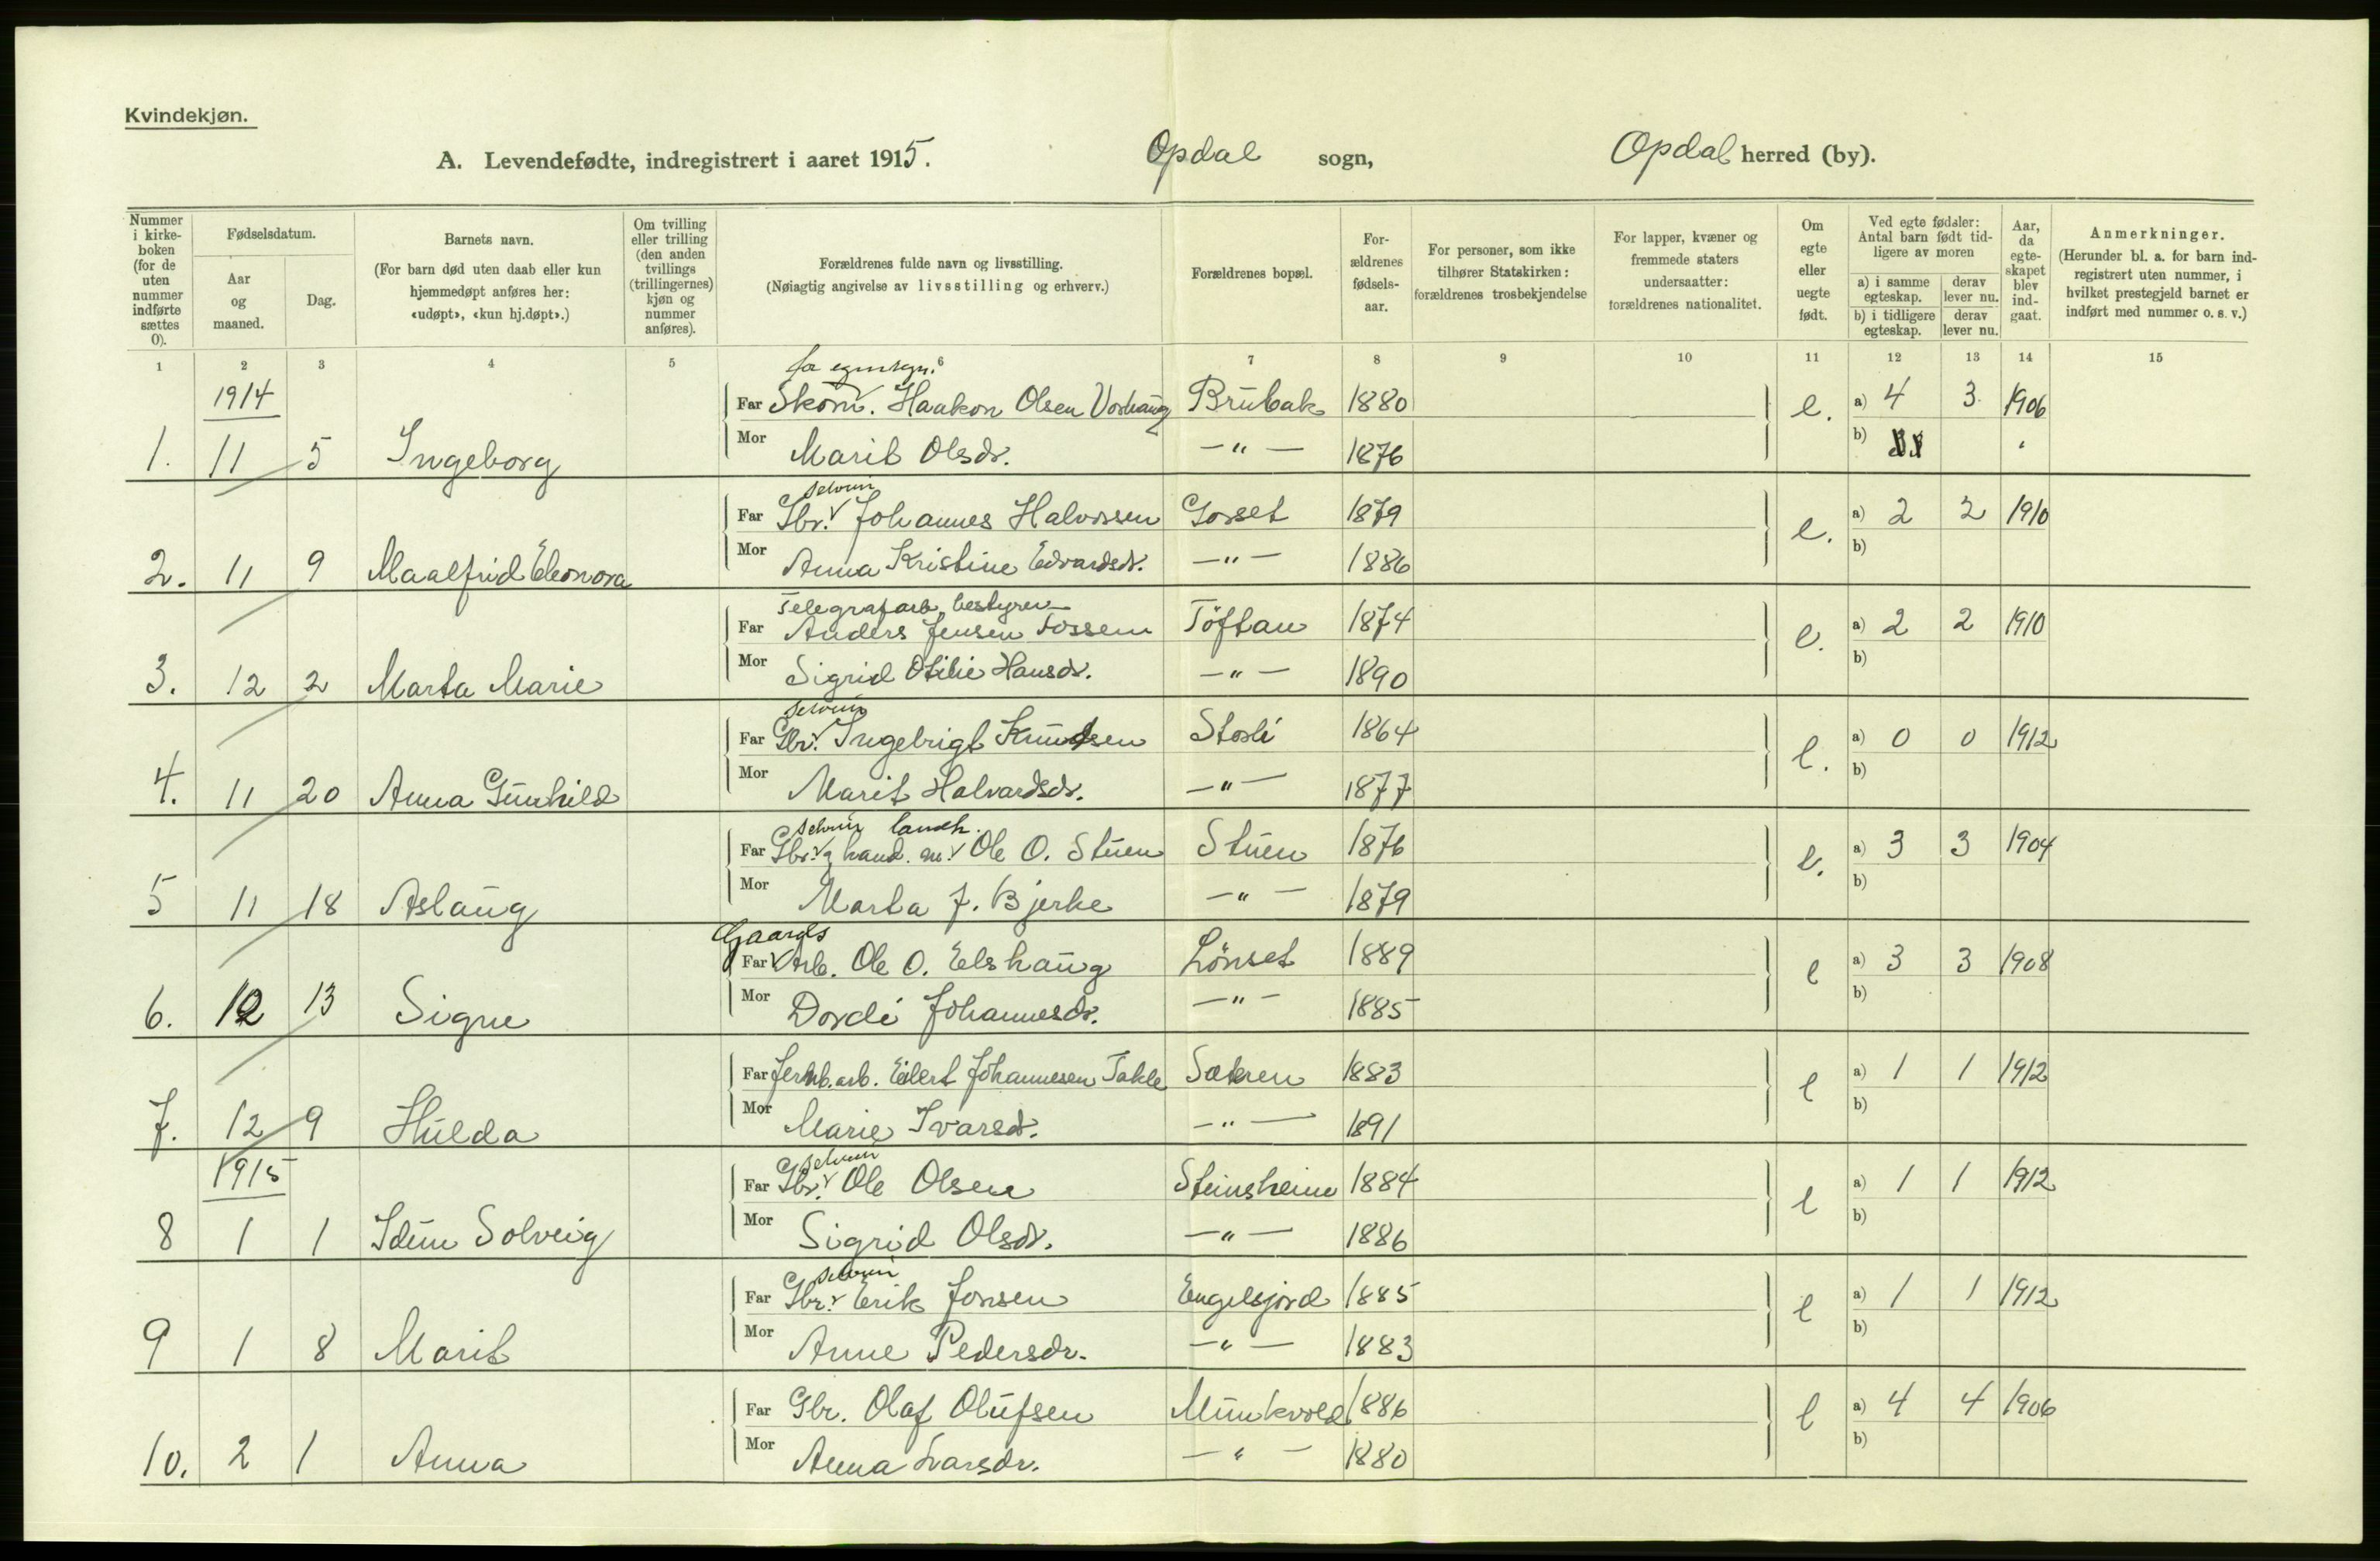 Kvindekjøn.
A. Levendefødte, indregistrert i aaret 1915. Opdal sogn, Opdal herred (by).
Nummer i kirkeboken (for de uten nummer indførte sættes 0).
Fødselsdatum.
Aar og maaned.
Dag.
Barnets navn.
(For barn død uten daab eller kun hjemmedøpt anføres her: «udøpt», «kun hj.døpt».)
Om tvilling eller trilling (den anden tvillings (trillingernes) kjøn og nummer anføres).
Forældrenes fulde navn og livsstilling.
(Nøiagtig angivelse av livsstilling og erhverv.)
Forældrenes bopæl.
Forældrenes fødselsaar.
For personer, som ikke tilhører Statskirken: forældrenes trosbekjendelse
For lapper, kvæner og fremmede staters undersaatter: forældrenes nationalitet.
Om egte eller uegte født.
Ved egte fødsler: Antal barn født tidligere av moren
a) i samme egteskap. derav lever nu.
b) i tidligere egteskap. derav lever nu.
Aar, da egteskapet blev indgaat.
Anmerkninger.
(Herunder bl. a. for barn indregistrert uten nummer, i hvilket prestegjeld barnet er indført med nummer o. s. v.)
1 2 3 4 5 6 7 8 9 10 11 12 13 14 15
1914
for egen regn.
Far Skom. Haakon Olsen Vorhaug Brubak 1880 e. a) 4 3 1906
1. 11 5 Ingeborg Mor Marit Olsdr. —"— 1876 b)
selveier
Far Gbr. Johannes Halvorsen Gorset 1879 e. a) 2 2 1910
2. 11 9 Maalfrid Eleonora Mor Anna Kristine Edvardsdr. —"— 1886 b)
Telegrafarb. bestyrer
Far Anders Jensen Fossem Töftan 1874 e. a) 2 2 1910
3. 12 2 Marta Marie Mor Sigrid Otilie Hansdr. —"— 1890 b)
selveier
Far Gbr. Ingebrigt Knudsen Stosli 1864 e. a) 0 0 1912
4. 11 20 Anna Gunhild Mor Marit Halvardsdr. —"— 1877 b)
selveier landh.
Far Gbr. g hand. m. Ole O. Stuen Stuen 1876 e. a) 3 3 1904
5 11 18 Aslaug Mor Marta J. Bjerke —"— 1879 b)
Gaards
Far Arb. Ole O. Elshaug Lönset 1889 e a) 3 3 1908
6. 12 13 Signe Mor Dordi Johannesdr. —"— 1885 b)
Far Jernb.arb. Eilert Johannesen Takle Sætren 1883 e a) 1 1 1912
7. 12 9 Hulda Mor Marie Ivarsd. —"— 1891 b)
1915
selveier
Far Gbr. Ole Olsen Steinsheim 1884 e a) 1 1 1912
8 1 1 Idun Solveig Mor Sigrid Olsdr. —"— 1886 b)
selveier
Far Gbr. Erik Jonsen Engelsjord 1885 e a) 1 1 1912
9 1 8 Marit Mor Anne Pedersdr. —"— 1883 b)
Far Gbr. Olaf Olufsen Munkvold 1886 e a) 4 4 1906
10. 2 1 Anna Mor Anna Larsdr. —"— 1880 b)